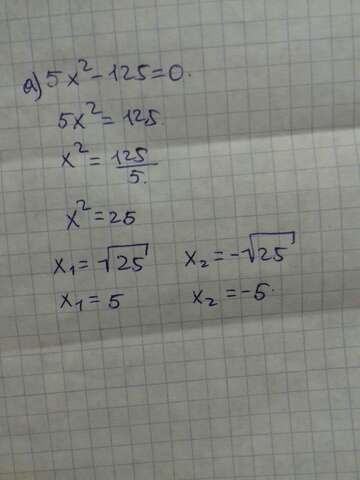 a) 5x² - 125 = 0.
5x² = 125.
x² = 125/5.
x² = 25
x₁ = √25 x₂ = -√25
x₁ = 5 x₂ = -5.